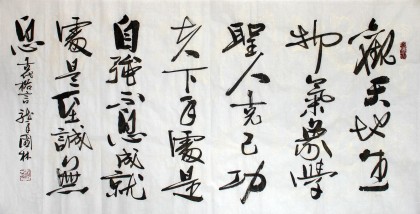 觀天地生
物氣象學
聖人克己功
夫下手處是
自強不息成就
處是至誠無
息 格言 國林